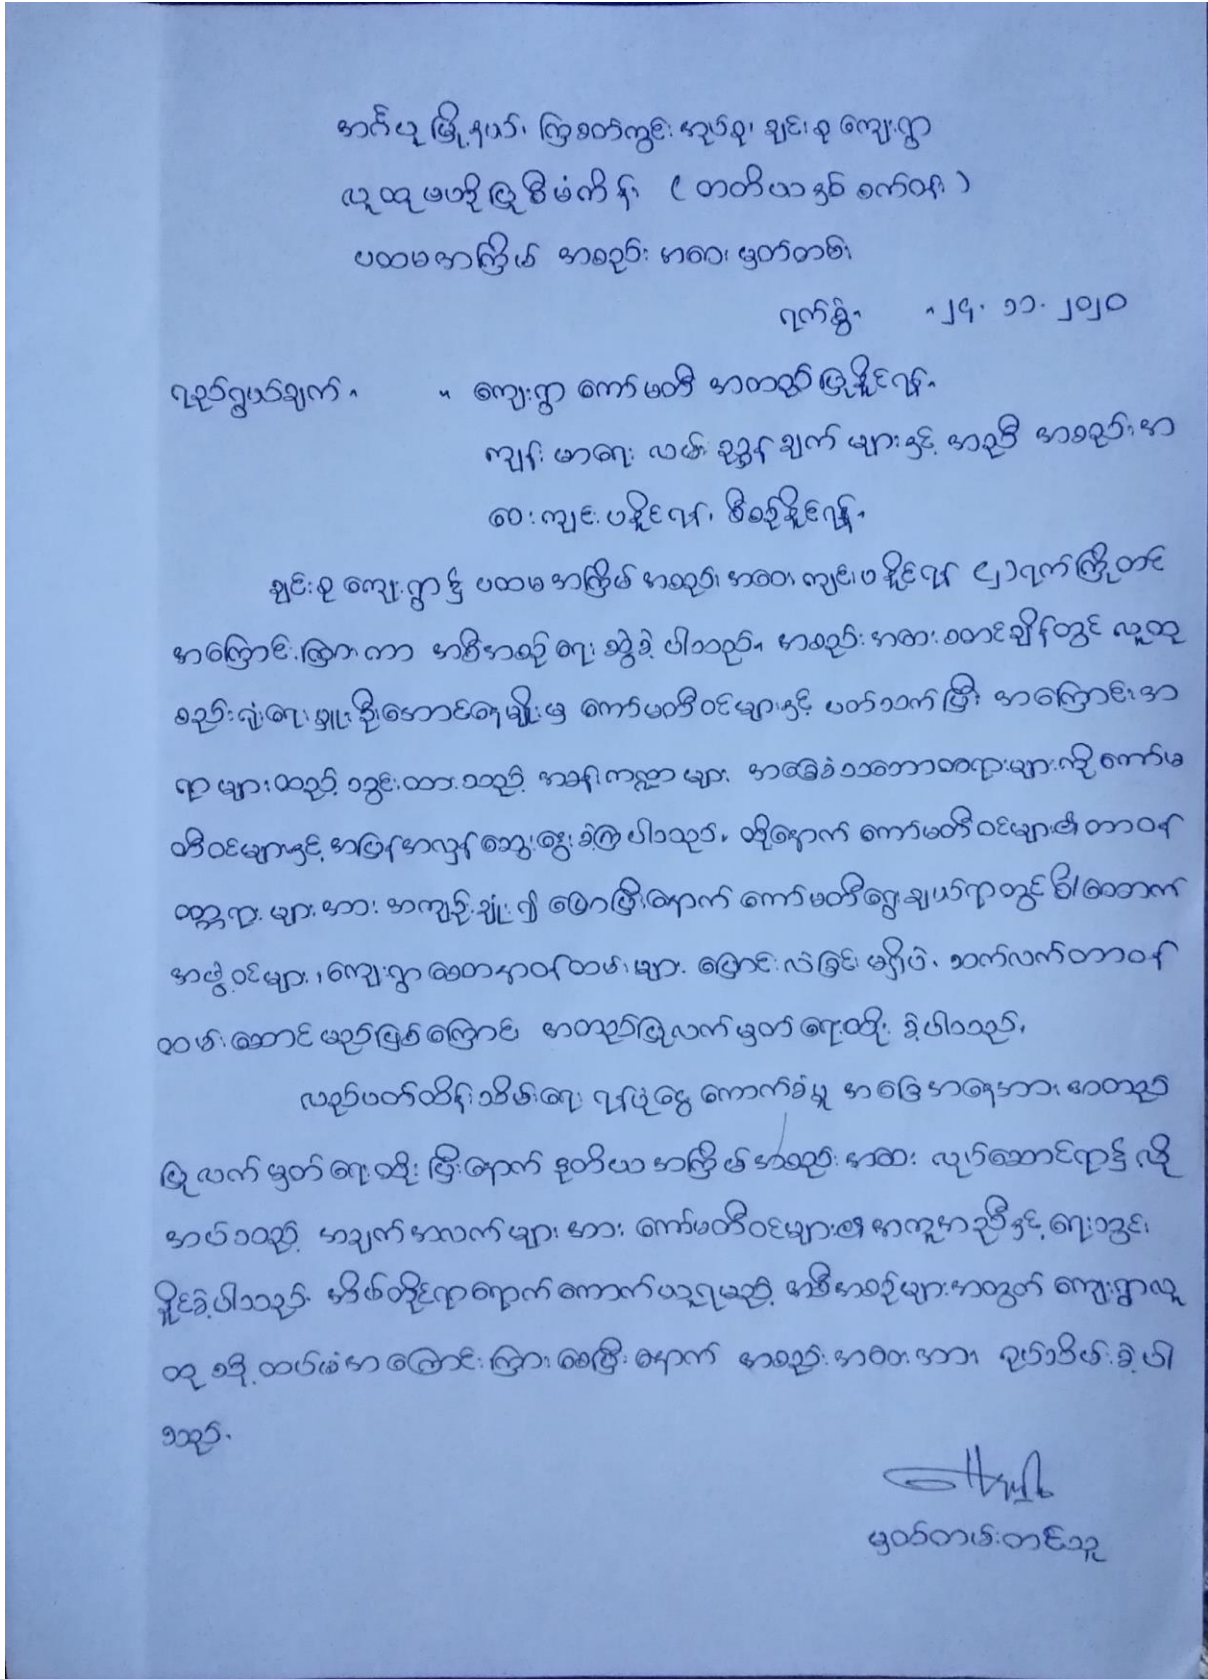 အင်္ဂပူ မြို့နယ်၊ ကြံခတ်ကွင်း အုပ်စု၊ ချင်းစု ကျေးရွာ
လူထုဗဟိုပြုစီမံကိန်း (တတိယနှစ်စက်ဝန်း)
ပထမအကြိမ် အစည်းအဝေး မှတ်တမ်း
ရက်စွဲ။ ။၂၄.၁၁.၂၀၂၀
ရည်ရွယ်ချက်။ ။ ကျေးရွာ ကော်မတီ အတည်ပြုနိုင်ရန်။
ကျန်းမာရေး လမ်းညွှန်ချက်များနှင့် အညီ အစည်းအ
ဝေးကျင်းပနိုင်ရန်၊ စီစဉ်နိုင်ရန်။
ချင်းစု ကျေးရွာ၌ ပထမအကြိမ် အစည်းအဝေး ကျင်းပနိုင်ရန် ရက်ကြိုတင်
အကြောင်းကြားကာ အစီအစဉ် ရေးဆွဲခဲ့ပါသည်။ အစည်းအဝေး စတင်ချိန်တွင် လူထု
စည်းရုံးရေးမှူး ဦးအောင်နေမျိုးမှ ကော်မတီဝင်များနှင့် ပတ်သက်ပြီး အကြောင်းအ
ရာများထည့်သွင်းထားသည့် အခန်းကဏ္ဍများ အခြေခံသဘောတရားများကို ကော်မ
တီဝင်များနှင့် အပြန်အလှန် ဆွေးနွေးခဲ့ကြပါသည်။ ထို့နောက် ကော်မတီဝင်များ၏ တာဝန်
ဝတ္တရားများအား အကျဉ်းချုံး၍ ပြောပြီးနောက် ကော်မတီရွေးချယ်ရာတွင်
အဖွဲ့ဝင်များ၊ ကျေးရွာစေတနာ့ဝန်ထမ်းများ ပြောင်းလဲခြင်းမရှိပဲ၊ ဆက်လက်တာဝန်
ထမ်းဆောင်မည်ဖြစ်ကြောင်း အတည်ပြုလက်မှတ် ရေးထိုးခဲ့ပါသည်။
လည်ပတ်ထိန်းသိမ်းရေး ရန်ပုံငွေ ကောက်ခံမှု အခြေအနေအား အတည်
ပြုလက်မှတ်ရေးထိုးပြီးနောက် ဒုတိယအကြိမ် အစည်းအဝေး လုပ်ဆောင်ရာ၌ လို
အပ်သည့် အချက်အလက်များအား ကော်မတီဝင်များ၏ အကူအညီနှင့် ရေးသွင်း
နိုင်ခဲ့ပါသည်။ အိမ်တိုင်ရာရောက်ကောက်ယူရမည့် အစီအစဉ်များအတွက် ကျေးရွာလူ
ထုသို့ ထပ်မံအကြောင်းကြားစေပြီးနောက် အစည်းအဝေးအား ရုပ်သိမ်းခဲ့ပါ
သည်။
မှတ်တမ်းတင်သူ